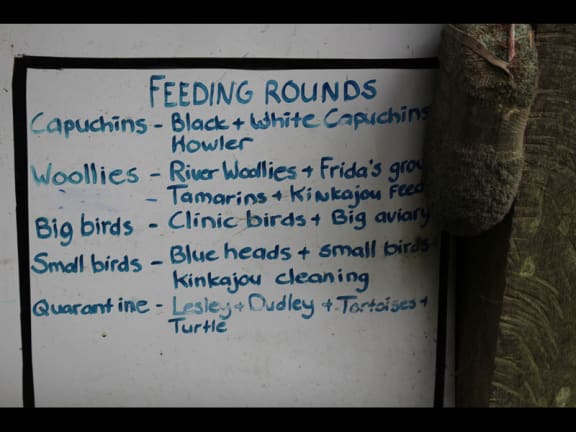 FEEDING ROUNDS
Capuchins - Black + White Capuchins
Howler
Woollies - River Woollies + Frida's
- Tamarins + Kinkajou Feed
Big birds - Clinic birds + Big aviary
Small birds - Blue heads + small birds
Kinkajou cleaning
Quarantine - Lesley + Dudley + Tortoises +
Turtle